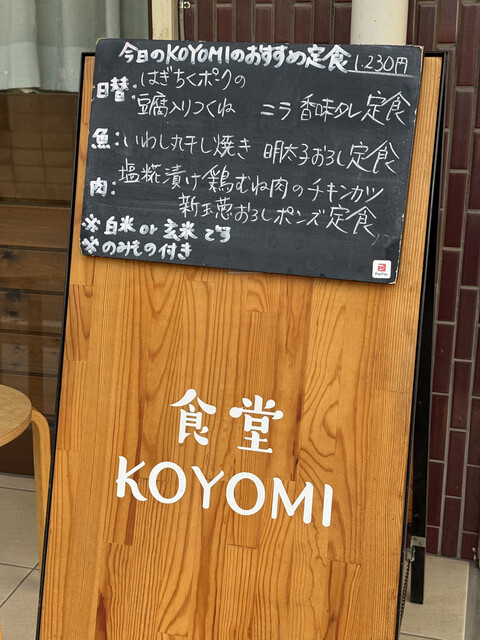 今日のKOYOMIのおすすめ定食 1.230円
日替:はぎちくポークの
豆腐入りつくね ニラ香味タレ定食
魚:いわし丸干し焼き 明太子おろし定食
肉:塩糀漬け鶏むね肉のチキンカツ
新玉葱おろしポンズ定食
※白米or玄米です
※のみもの付き
PayPay
食堂
KOYOMI